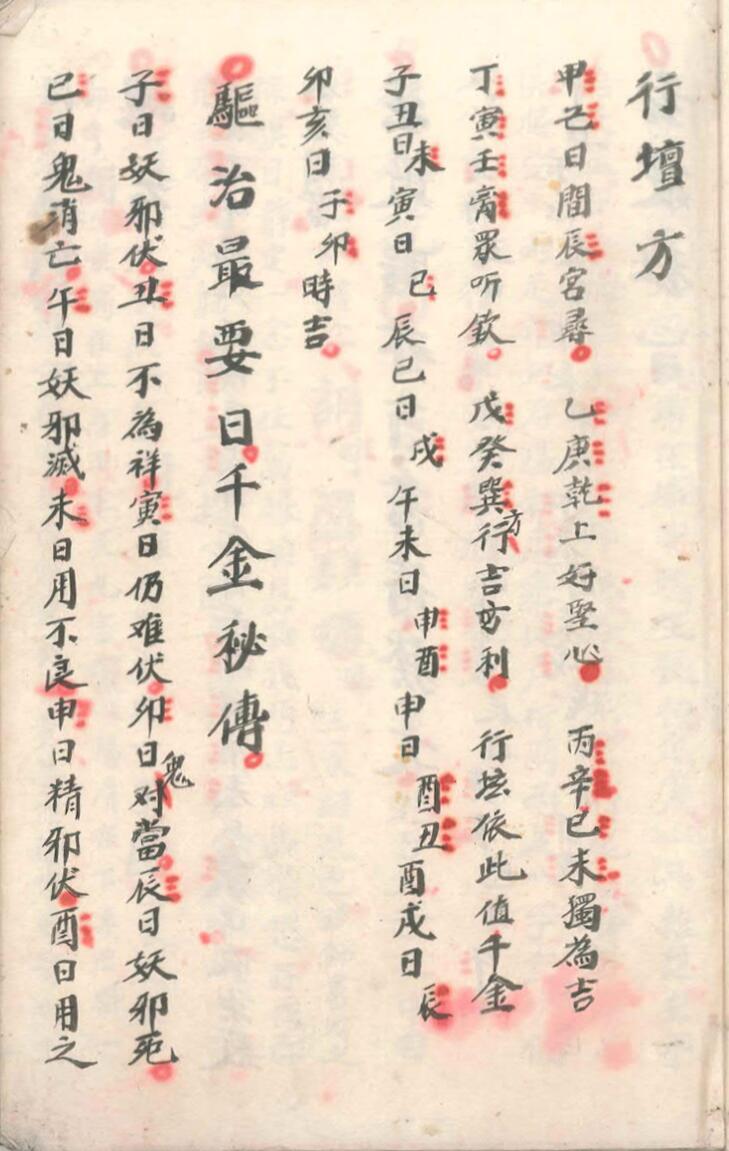 行壇方
甲己日間辰宮尋。乙庚乾上好堅心。丙辛巳未獨為吉
丁寅壬 眾听欽。戊癸巽行方吉 利。行坛依此值千金
子丑日未 寅日巳 辰巳日戌 午未日申酉 申日酉丑 酉戌日辰
卯亥日子卯時吉。
驅治最要日千金秘傳
子日妖邪伏丑日不為祥寅日仍难伏卯日鬼对當辰日妖邪死
巳日鬼消亡午日妖邪滅未日用不良申日精邪伏酉日用之